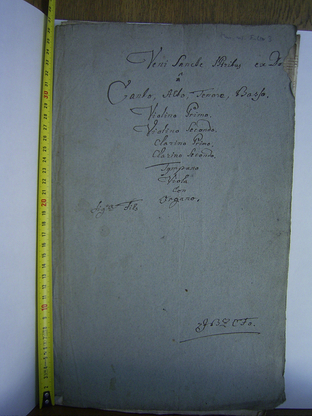 Veni Sancte Spiritus ex D
â
Canto, Alto, Tenore, Basso,
Violino Primo,
Violino Secundo,
Clarino Primo,
Clarino Secundo,
Tympano
Viola
Con
Organo.